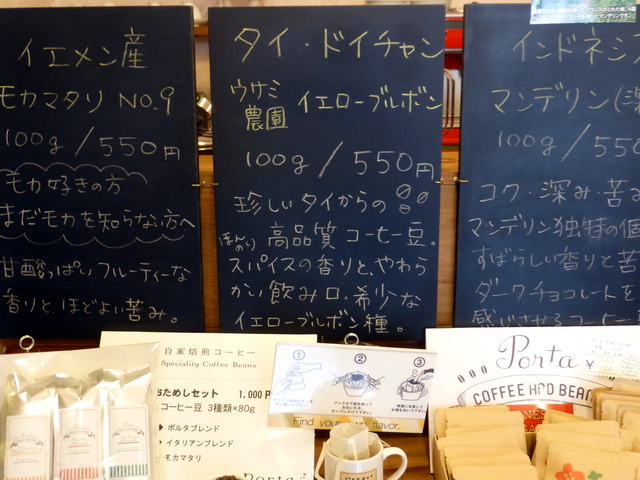 イエメン産
モカマタリ NO.9
100g/550円
モカ好きの方
まだモカを知らない方へ
甘酸っぱいフルーティーな
香りと、ほどよい苦み。
タイ・ドイチャン
ウサミ農園 イエローブルボン
100g/550円
珍しいタイからの
ほんのり高品質コーヒー豆。
スパイスの香りと、やわら
かい飲み口・希少な
イエローブルボン種。
インドネシ
マンデリン(深
100g/550
コク・深み・苦
マンデリン独特の個
すばらしい香りと苦
ダークチョコレートを
感じさせるコーヒー
自家焙煎コーヒー
Speciality Coffee Beans
おためしセット 1,000
コーヒー豆 3種類×80g
▶ポルタブレンド
▶イタリアンブレンド
▶モカマタリ
porta
1
2
3
Find your flavor.
Porta
COFFEE AND BEAN